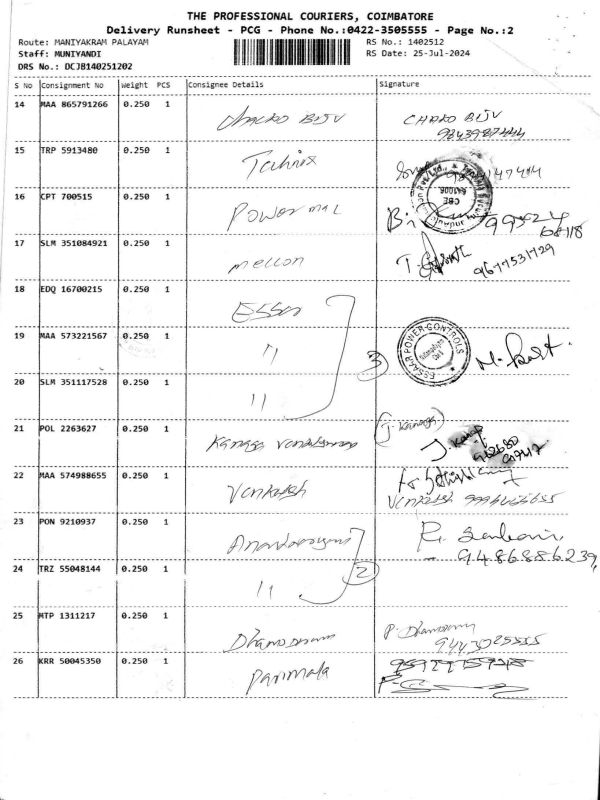 THE PROFESSIONAL COURIERS, COIMBATORE
Delivery Runsheet - PCG - Phone No.:0422-3505555 - Page No.:2
Route: MANIYAKRAM PALAYAM
RS No.: 1402512
Staff: MUNIYANDI
RS Date: 25-Jul-2024
DRS No.: DCJB140251202
S No Consignment No Weight PCS Consignee Details Signature
14 MAA 865791266 0.250 1 CHACKO BIJU CHAKO BIJU
15 TRP 5913480 0.250 1
16 CPT 700515 0.250 1 Power mac
17 SLM 351084921 0.250 1 mellon 9677531729
18 EDQ 16700215 0.250 1
19 MAA 573221567 0.250 1 11
3
ESSAAR POWER-CONTROLS
20 SLM 351117528 0.250 1 11
21 POL 2263627 0.250 1
22 MAA 574988655 0.250 1 Venkatesh
23 PON 9210937 0.250 1 9486886239,
24 TRZ 55048144 0.250 1 11 2
25 MTP 1311217 0.250 1
9443025555
26 KRR 50045350 0.250 1 Parimala